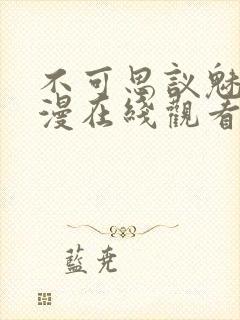 不可思议魅
漫在线觀看
藍尭